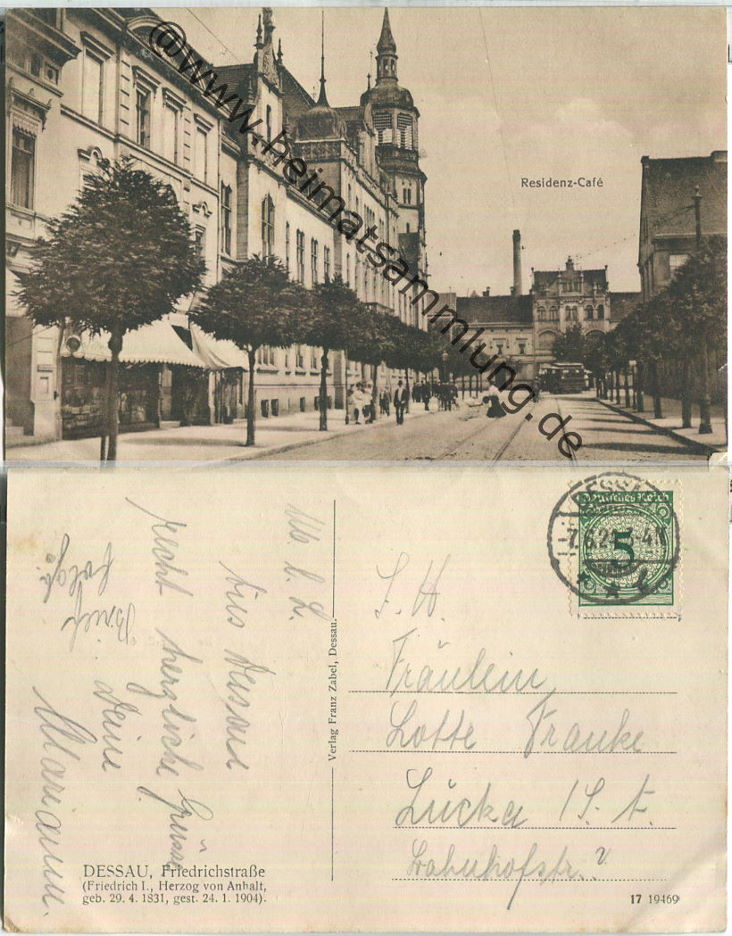 @www.heimatsammlung.de
Residenz-Café
DESSAU
-7.6.24. 3-4 N
Deutsches Reich
5
M. l. L.
Aus Dessau
recht herzliche Grüsse
Deine
Marianne.
Brief folgt
Verlag Franz Zabel, Dessau.
S. H.
Fräulein
Lotte Franke
Lucka /S. A.
Bahnhofstr. ?
DESSAU, Friedrichstraße
(Friedrich I., Herzog von Anhalt,
geb. 29. 4. 1831, gest. 24. 1. 1904).
17 19469